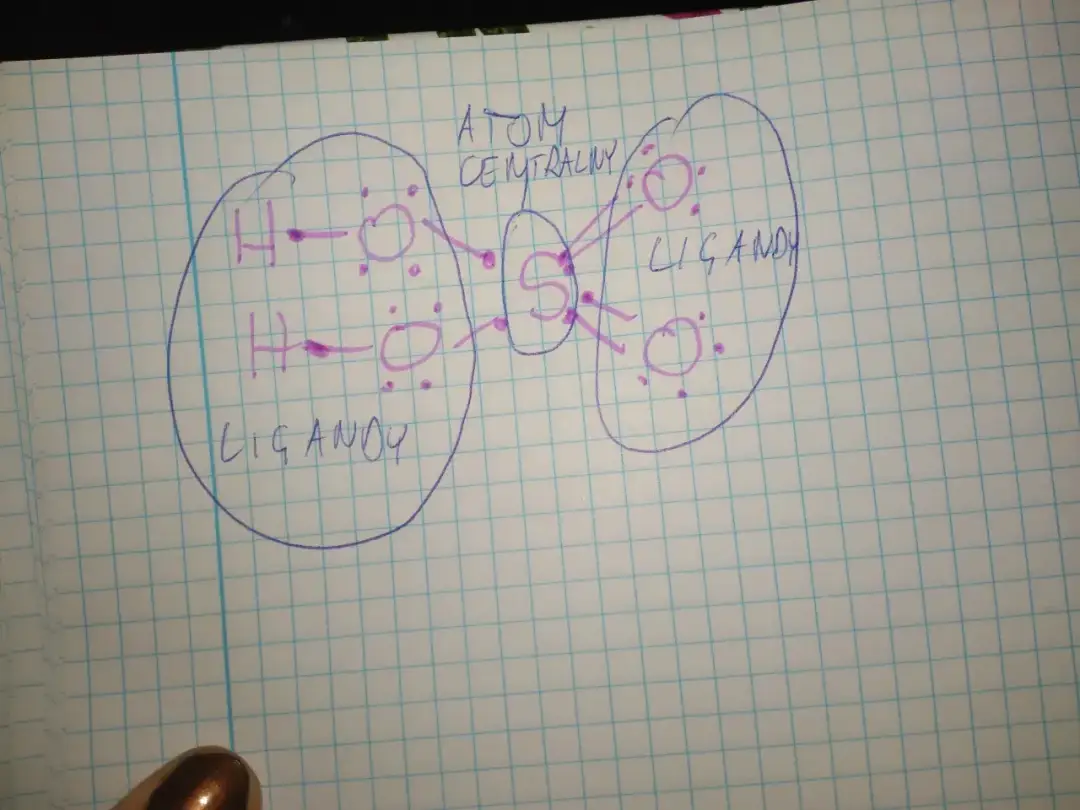 ATOM
CENTRALNY
H - O
S
O
LIGANDY
H - O
O
LIGANDY